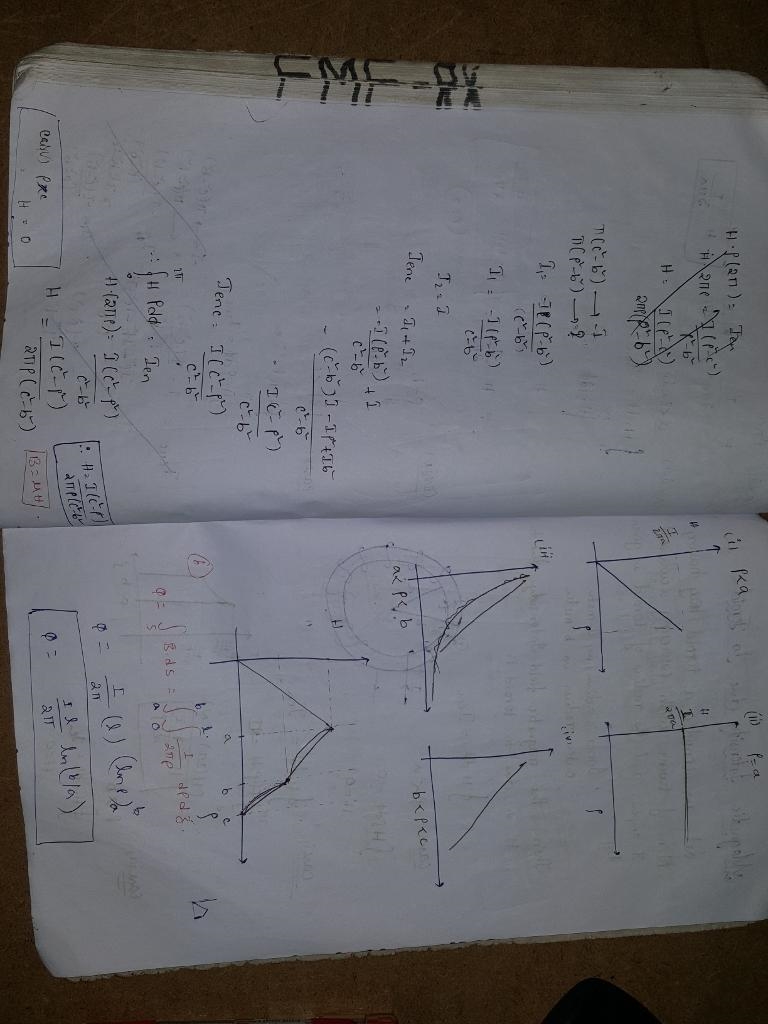 EMF - RK
H·ρ(2π) = Ien
H 2πρ = I(ρ²-c²)
ρ²-b²
H = I(ρ²-c²)
2πρ(ρ²-b²)
π(c²-b²) → -I
π(ρ²-b²) → ?
I₁ = -I(ρ²-b²)
(c²-b²)
I₁ = -I(ρ²-b²)
c²-b²
I₂ = I
Ienc = I₁ + I₂
= -I(ρ²-b²) + I
c²-b²
= (c²-b²)I - Iρ² + Ib²
c²-b²
= I(c²-ρ²)
c²-b²
Ienc = I(c²-ρ²)
c²-b²
∴ ∫ H ρdφ = Ien
2π
0
H·(2πρ) = I(c²-ρ²)
c²-b²
H = I(c²-ρ²)
2πρ(c²-b²)
∴ H = I(c²-ρ²)
2πρ(c²-b²)
B = μH.
case(v) ρ>c
H = 0
(i) ρ<a
H
I
2πa
ρ
(ii) ρ=a
H
I
2πa
ρ
(iii)
a<ρ<b
(iv)
b<ρ<c
H
a
b
c
ρ
(b)
Φ = ∫ B ds = ∫ ∫ I dρdz
s
b l
a 0
2πρ
Φ = I (l) (ln ρ)
2π
b
a
Φ = Il ln(b/a)
2π